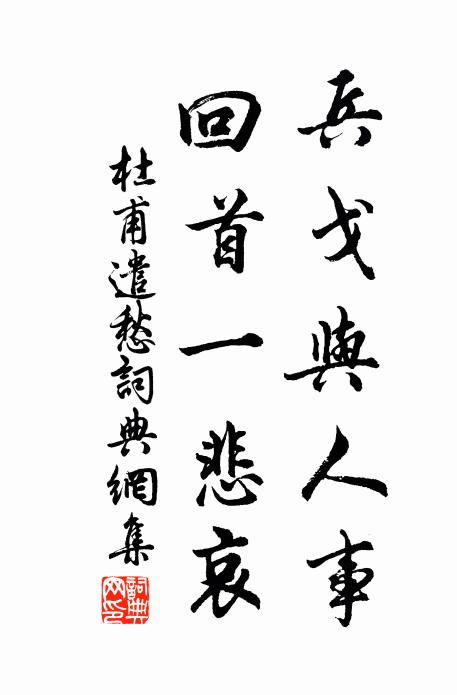 兵戈與人事
回首一悲哀
杜甫遣愁詞典網集
詞典网印